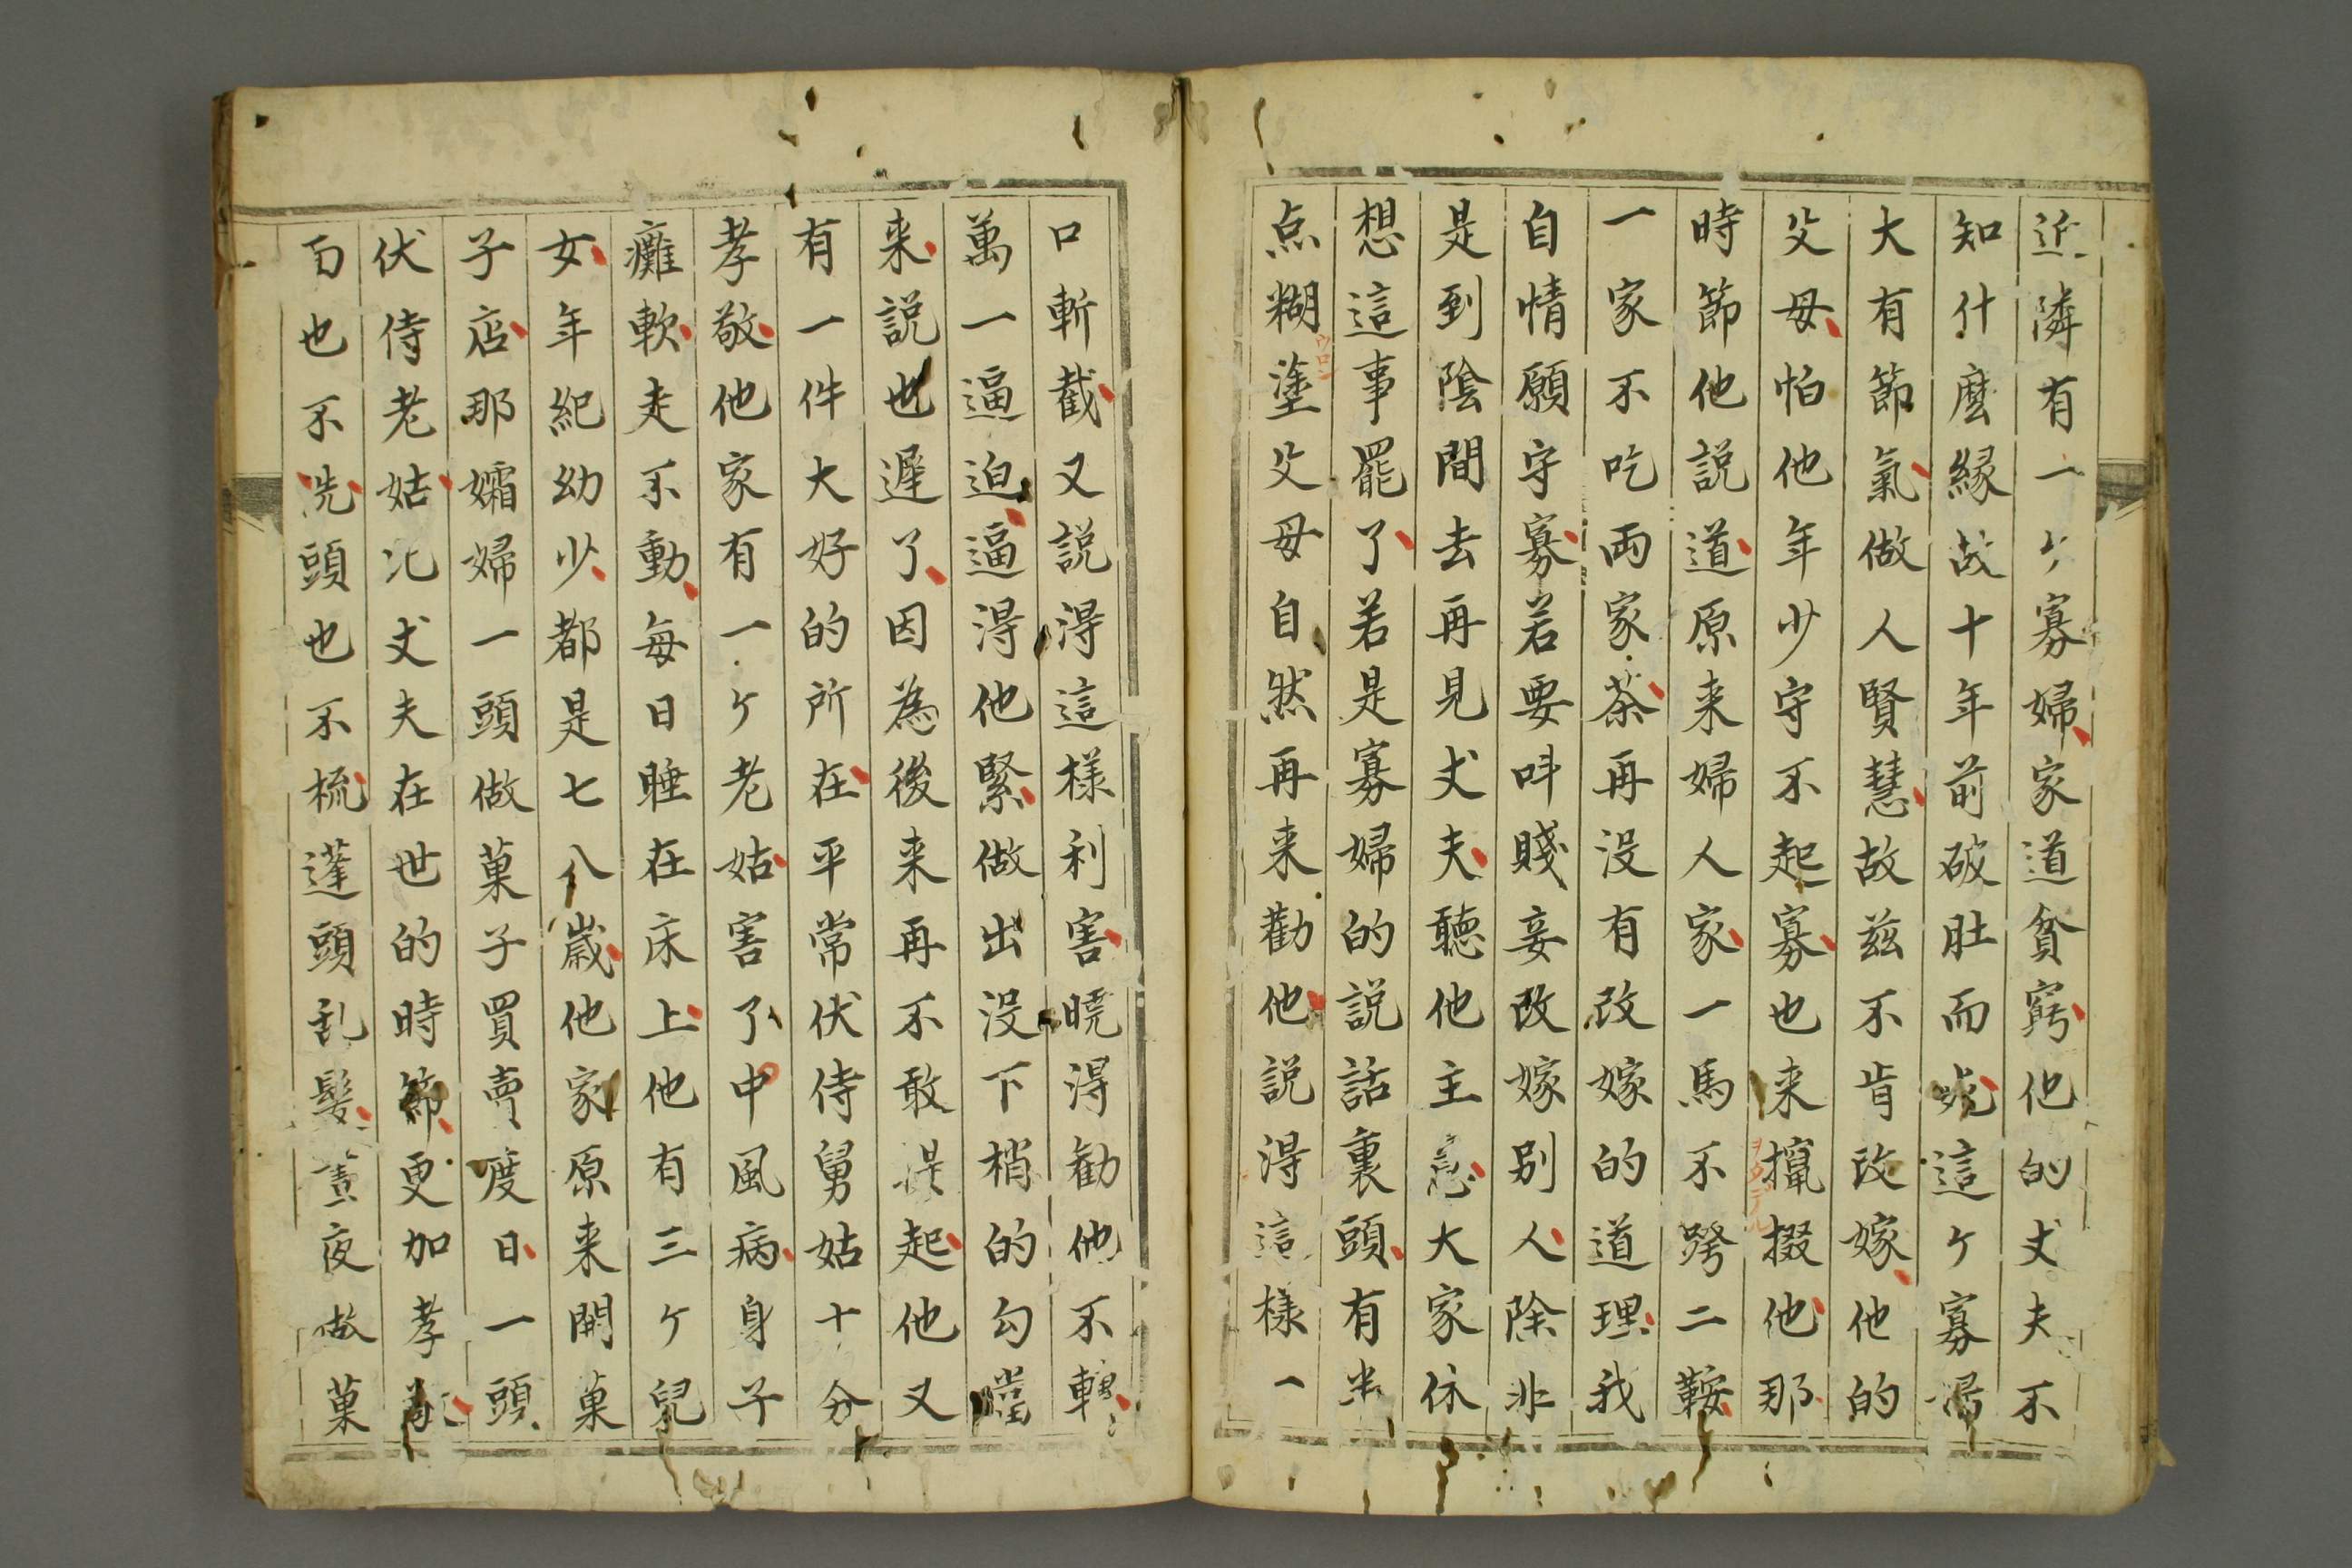 近隣有一ケ寡婦家道貧窮他的丈夫不
知什麼縁故十年前破肚而死這ケ寡婦
大有節氣做人賢慧故兹不肯改嫁他的
父母怕他年少守不起寡也来攛掇他那
ヲタテル
時節他説道原来婦人家一馬不跨二鞍
一家不吃両家茶再没有改嫁的道理我
自情願守寡若要呌賤妾改嫁別人除非
是到陰間去再見丈夫聽他主意大家休
想這事罷了若是寡婦的説話裏頭有半
点糊塗父母自然再来勸他説得這様一
ウロン
口斬截又説得這様利害曉得勸他不轉
萬一逼迫逼得他緊做出没下梢的勾當
来説也遲了因為後来再不敢提起他又
有一件大好的所在平常伏侍舅姑十分
孝敬他家有一ケ老姑害了中風病身子
癱軟走不動毎日睡在床上他有三ケ兒
女年紀幼少都是七八歳他家原来開菓
子店那孀婦一頭做菓子買賣度日一頭
伏侍老姑比丈夫在世的時節更加孝敬
面也不洗頭也不梳蓬頭乱髮晝夜做菓